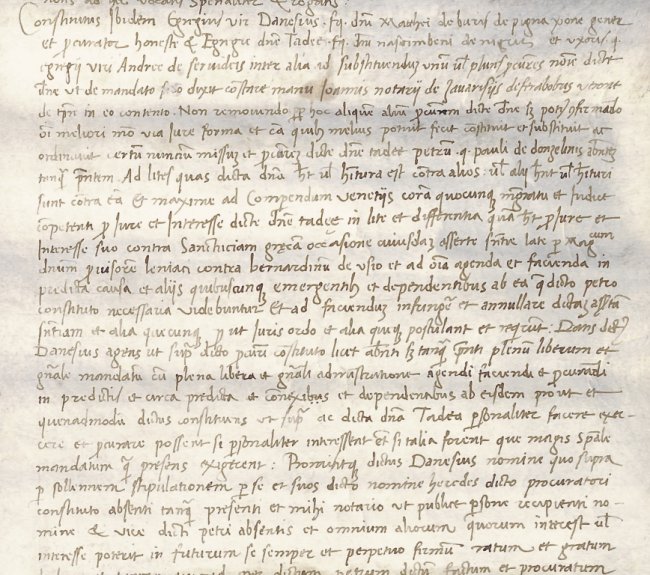 Constitutus Ibidem Egregius vir Danesius fq. dnı Matthei de buris de pigna xone gener
et procurator honeste & Egregie dne Tadee fq. dnı nascimbeni de nigris et uxoris q
egregij viri Andree de serudeis inter alia ad substituendum unum ul plures pcures noıe dicte
dne ut de mandato dixit constare manu Ioannis notarij de
de in eo contento. Non removendo p hoc aliquem alium pcurem dicte dne
oı meliori mo via iure forma et ca quibus melius potuit fecit constituit et substituit ac
ordinavit certum nuncium missum et pcurem dicte dne tadee petrum q. pauli de donzelinis absentem
tanq pntem. Ad lites quas dicta dna ht ul hitura est contra alios ul alij hnt ul hituri
sunt contra ea Et maxime ad Comparendum venetijs cora quocunq mgratu et Iudice
competenti p iure et Interesse dicte dne tadee in lite et differentia quam ht p iure et
Interesse suo contra grecam occasione cuiusdam asserte sntie late p Mag cum
dnum provisorem contra bernardinum de usio et ad oia agenda et facienda in
predicta causa et alijs quibuscunq emergentibus et dependentibus ab ea que dicto petro
constituto necessaria videbuntur Et ad faciendum infringere et annullare dictam assertam
sntiam et alia quecunq p ut iuris ordo et alia queq postulant et reqrunt. Dans dictus
Danesius agens ut supra dicto pcuri constituto licet absenti tanq pnti plenum liberum et
gnale mandatum cu plena libera et gnali administratione agendi faciendi et procurandi
in predictis et circa predicta et connexibus et dependentibus ab eisdem prout et
quemadmodum dictus constituens ut supra ac dicta dna Tadea personaliter facere exer-
cere et procurare possent se personaliter interessent et si talia forent que magis spale
mandatum q presens exigerent: Promittitq dictus Danesius nomine quo supra
p sollennem stipulationem p se et suos dicto nomine heredes dicto procuratori
constituto absenti tanq presenti et mihi notario ut publice persone recipienti no-
mine & vice dicti petri absentis et omnium aliorum quorum interest ul
interesse poterit in futurum se semper et perpetuo firmum ratum et gratum
dictum petrum dictum factum et procuratum